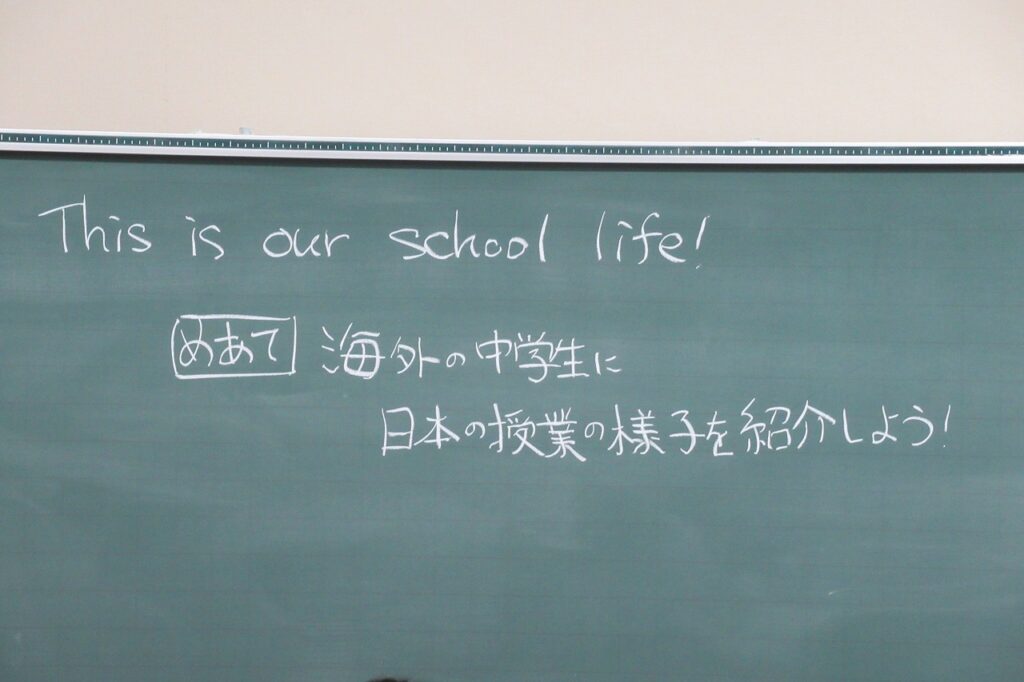 This is our school life!
めあて 海外の中学生に
日本の授業の様子を紹介しよう!